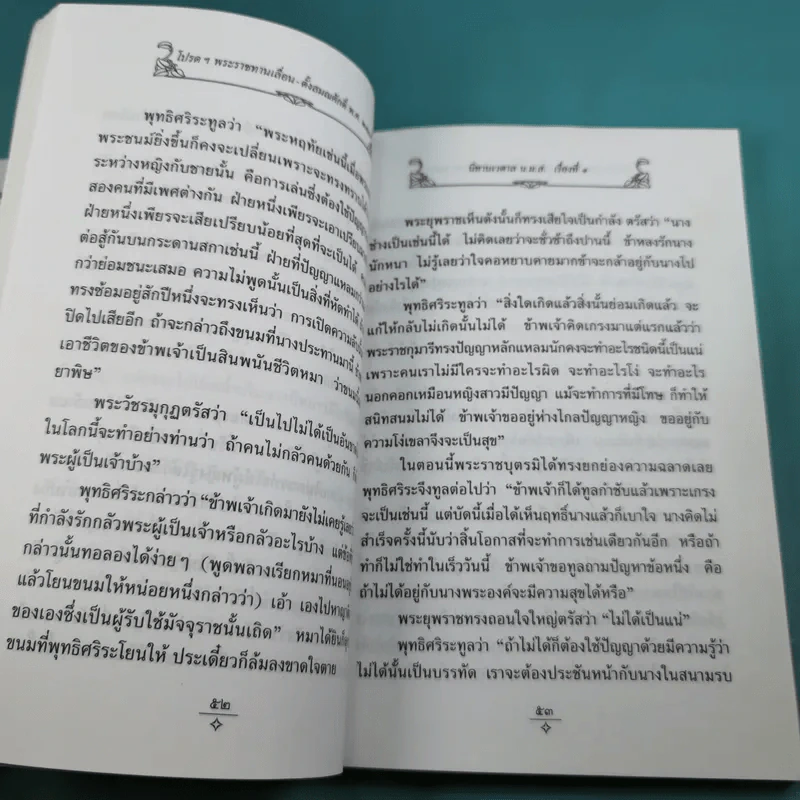 โปรด ฯ พระราชทานเลื่อน - ตั้งสมณศักดิ์ พ.ศ.
พุทธิศริระทูลว่า “พระหฤทัยเช่นนี้เมื่อ
พระชนม์ยิ่งขึ้นก็คงจะเปลี่ยนเพราะจะทรงทราบ
ระหว่างหญิงกับชายนั้น คือการเล่นซึ่งต้องใช้ปัญญา
สองคนที่มีเพศต่างกัน ฝ่ายหนึ่งเพียรจะเอาเปรียบ
ฝ่ายหนึ่งเพียรจะเสียเปรียบน้อยที่สุดที่จะเป็นได้
ต่อสู้กันบนกระดานสกาเช่นนี้ ฝ่ายที่ปัญญาแหลม
กว่าย่อมชนะเสมอ ความไม่พูดนั้นเป็นสิ่งที่หัดทำได้
ทรงซ้อมอยู่สักปีหนึ่งจะทรงเห็นว่า การเปิดความลับ
ปิดไปเสียอีก ถ้าจะกล่าวถึงขนมที่นางประทานมานี้
เอาชีวิตของข้าพเจ้าเป็นสินพนันชีวิตหมา ว่าขนม
ยาพิษ”
พระวัชรมุกุฏตรัสว่า “เป็นไปไม่ได้เป็นอัน
ในโลกนี้จะทำอย่างท่านว่า ถ้าคนไม่กลัวคนด้วยกัน
พระผู้เป็นเจ้าบ้าง”
พุทธิศริระกล่าวว่า “ข้าพเจ้าเกิดมายังไม่เคยรู้
ที่กำลังรักกลัวพระผู้เป็นเจ้าหรือกลัวอะไรบ้าง แต่ข้อ
กล่าวนั้นทดลองได้ง่าย ๆ (พูดพลางเรียกหมาที่นอน
แล้วโยนขนมให้หน่อยหนึ่งกล่าวว่า) เอ้า เองไปหา
ของเองซึ่งเป็นผู้รับใช้มัจจุราชนั้นเถิด” หมาได้ยินก็
ขนมที่พุทธิศริระโยนให้ ประเดี๋ยวก็ล้มลงขาดใจตาย
๕๒
นิทานเวตาล น.ม.ส. เรื่องที่ ๑
พระยุพราชเห็นดังนั้นก็ทรงเสียใจเป็นกำลัง ตรัสว่า “นาง
ช่างเป็นเช่นนี้ได้ ไม่คิดเลยว่าจะชั่วช้าถึงปานนี้ ข้าหลงรักนาง
นักหนา ไม่รู้เลยว่าใจคอหยาบคายมากข้าจะกล้าอยู่กับนางไป
อย่างไรได้”
พุทธิศริระทูลว่า “สิ่งใดเกิดแล้วสิ่งนั้นย่อมเกิดแล้ว จะ
แก้ให้กลับไม่เกิดนั้นไม่ได้ ข้าพเจ้าคิดเกรงมาแต่แรกแล้วว่า
พระราชกุมารีทรงปัญญาหลักแหลมนักคงจะทำอะไรชนิดนี้เป็นแน่
เพราะคนเราไม่มีใครจะทำอะไรผิด จะทำอะไรโง่ จะทำอะไร
นอกคอกเหมือนหญิงสาวมีปัญญา แม้จะทำการที่มีโทษ ก็ทำให้
สนิทสนมไม่ได้ ข้าพเจ้าขออยู่ห่างไกลปัญญาหญิง ขออยู่กับ
ความโง่เขลาจึงจะเป็นสุข”
ในตอนนี้พระราชบุตรมิได้ทรงยกย่องความฉลาดเลย
พุทธิศริระจึงทูลต่อไปว่า “ข้าพเจ้าก็ได้ทูลกำชับแล้วเพราะเกรง
จะเป็นเช่นนี้ แต่บัดนี้เมื่อได้เห็นฤทธิ์นางแล้วก็เบาใจ นางคิดไม่
สำเร็จครั้งนี้นับว่าสิ้นโอกาสที่จะทำการเช่นเดียวกันอีก หรือถ้า
ทำก็ไม่ใช่ทำในเร็ววันนี้ ข้าพเจ้าขอทูลถามปัญหาข้อหนึ่ง คือ
ถ้าไม่ได้อยู่กับนางพระองค์จะมีความสุขได้หรือ”
พระยุพราชทรงถอนใจใหญ่ตรัสว่า “ไม่ได้เป็นแน่”
พุทธิศริระทูลว่า “ถ้าไม่ได้ก็ต้องใช้ปัญญาด้วยมีความรู้ว่า
ไม่ได้นั้นเป็นบรรทัด เราจะต้องประชันหน้ากับนางในสนามรบ
๕๓